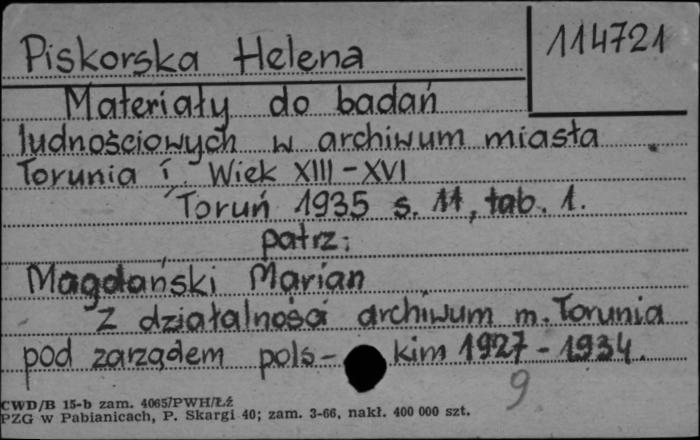 Piskorska Helena
114721
Materiały do badań
ludnościowych w archiwum miasta
Torunia i. Wiek XIII-XVI
Toruń 1935 s. 11, tab. 1.
patrz:
Magdański Marian
Z działalności archiwum m. Torunia
pod zarządem pols-kim 1927-1934.
9
CWD/B 15-b zam. 4065/PWH/Łź
PZG w Pabianicach, P. Skargi 40; zam. 3-66, nakł. 400 000 szt.